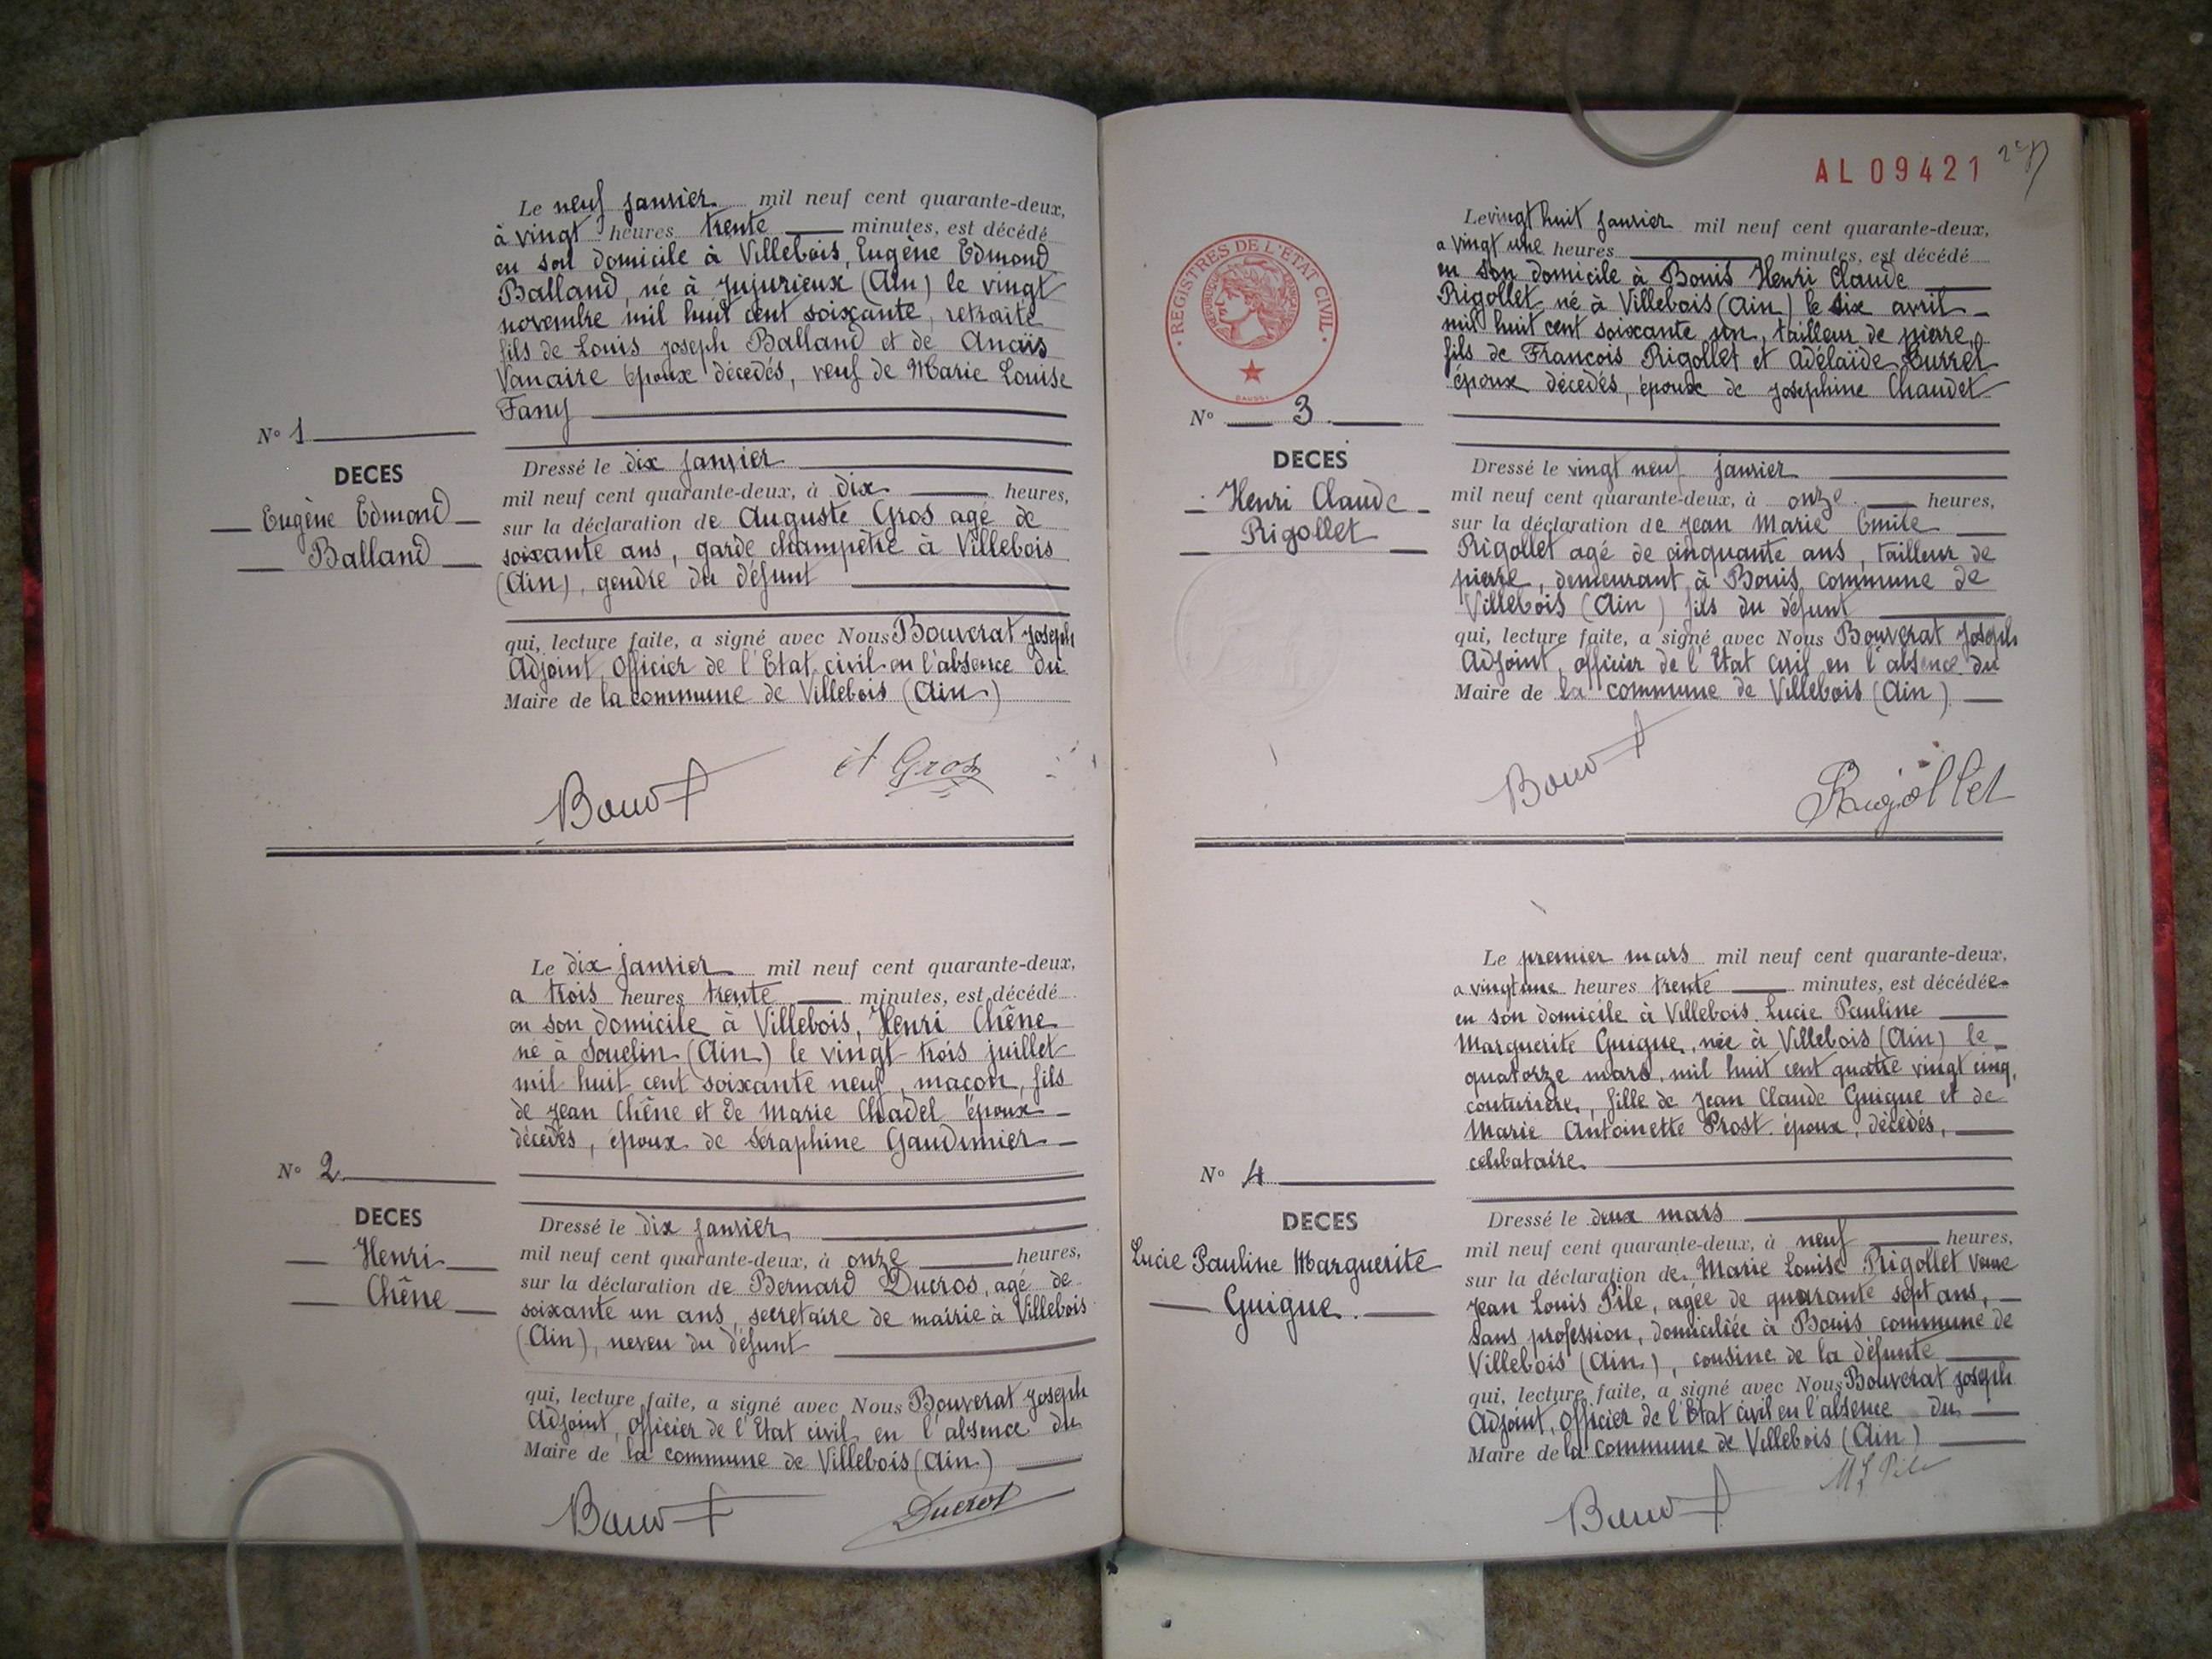 Le neuf janvier mil neuf cent quarante-deux,
à vingt heures trente minutes, est décédé
en son domicile à Villebois, Eugène Edmond
Balland, né à Jujurieux (Ain) le vingt
novembre mil huit cent soixante, retraité
fils de Louis Joseph Balland et de Anaïs
Vanaire époux décédés, veuf de Marie Louise
Fany
N° 1
DECES
Eugène Edmond
Balland
Dressé le dix janvier
mil neuf cent quarante-deux, à dix heures,
sur la déclaration de Auguste Gros agé de
soixante ans, garde champêtre à Villebois
(Ain), gendre du défunt
qui, lecture faite, a signé avec Nous Bouverat Joseph
Adjoint, Officier de l'Etat civil en l'absence du
Maire de la commune de Villebois (Ain)
A Gros
N° 2
DECES
Henri
Chêne
Le dix janvier mil neuf cent quarante-deux,
a trois heures trente minutes, est décédé
en son domicile à Villebois, Henri Chêne
né à Souclin (Ain) le vingt trois juillet
mil huit cent soixante neuf, maçon, fils
de Jean Chêne et de Marie Chadel époux
décédés, époux de Séraphine Gaudimier
Dressé le dix janvier
mil neuf cent quarante-deux, à onze heures,
sur la déclaration de Bernard Ducros, agé de
soixante un ans, secretaire de mairie à Villebois
(Ain), neveu du défunt
qui, lecture faite, a signé avec Nous Bouverat Joseph
Adjoint, Officier de l'Etat civil en l'absence du
Maire de la commune de Villebois (Ain)
AL 09421
REGISTRES DE L'ETAT CIVIL
N° 3
DECES
Henri Claude
Rigollet
Le vingt huit janvier mil neuf cent quarante-deux,
a vingt une heures minutes, est décédé
en son domicile à Bouis Henri Claude
Rigollet né à Villebois (Ain) le six avril
mil huit cent soixante un, tailleur de pierre,
fils de François Rigollet et Adélaïde Burrel
époux décédés, époux de Joséphine Chaudet
Dressé le vingt neuf janvier
mil neuf cent quarante-deux, à onze heures,
sur la déclaration de Jean Marie Emile
Rigollet agé de cinquante ans, tailleur de
pierre, demeurant à Bouis, commune de
Villebois (Ain) fils du défunt
qui, lecture faite, a signé avec Nous Bouverat Joseph
Adjoint, officier de l'Etat civil en l'absence du
Maire de la commune de Villebois (Ain)
Rigollet
N° 4
DECES
Lucie Pauline Marguerite
Guigue.
Le premier mars mil neuf cent quarante-deux,
a vingt une heures trente minutes, est décédée
en son domicile à Villebois Lucie Pauline
Marguerite Guigue, née à Villebois (Ain) le
quatorze mars, mil huit cent quatre vingt cinq,
couturière, fille de Jean Claude Guigue et de
Marie Antoinette Prost époux, décédés,
célibataire.
Dressé le deux mars
mil neuf cent quarante-deux, à neuf heures,
sur la déclaration de Marie Louise Rigollet Veuve
Jean Louis Pile, agée de quarante sept ans,
sans profession, domiciliée à Bouis commune de
Villebois (Ain), cousine de la défunte
qui, lecture faite, a signé avec Nous Bouverat Joseph
Adjoint, Officier de l'Etat civil en l'absence du
Maire de la commune de Villebois (Ain)